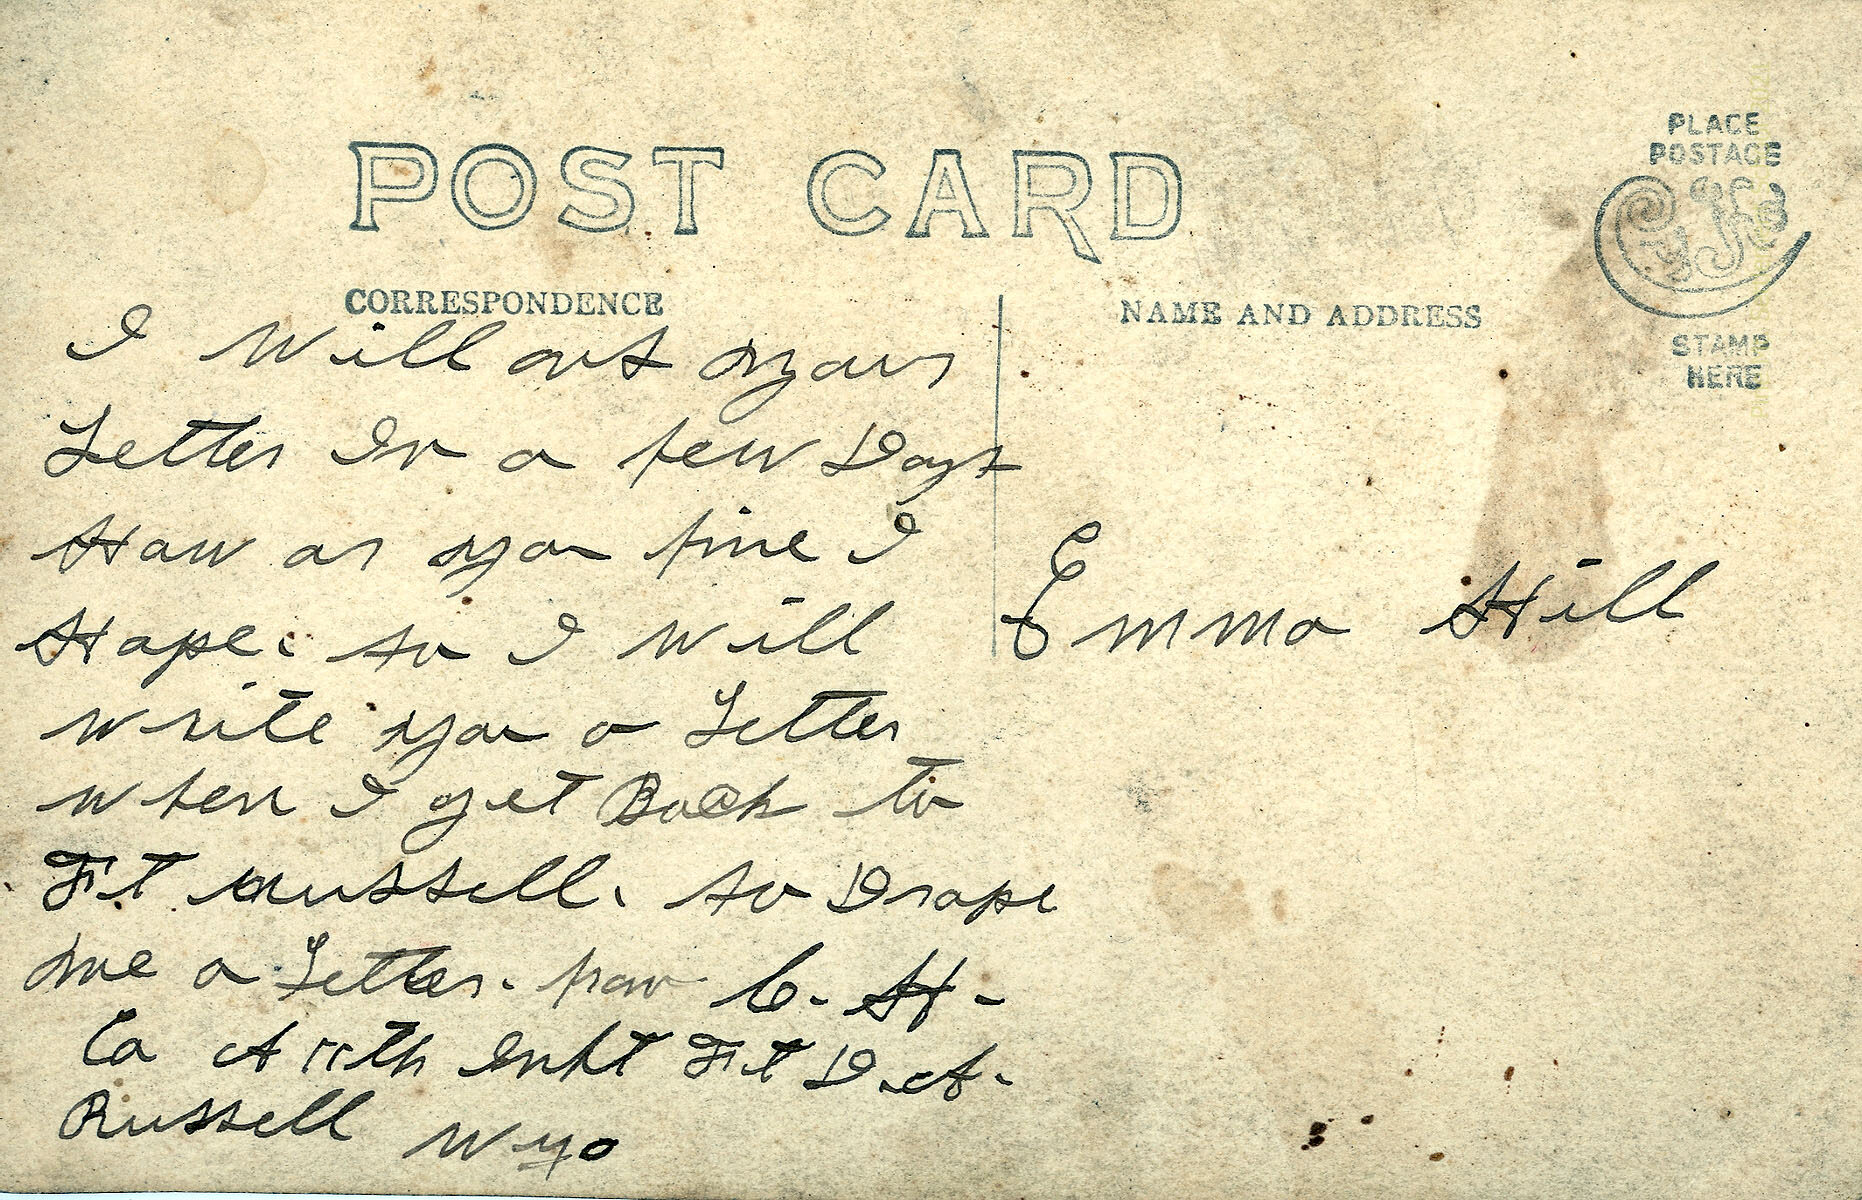 POST CARD
PLACE
POSTAGE
STAMP
HERE
CORRESPONDENCE
NAME AND ADDRESS
I Will your
Letter In a few Days
Haw ar you fine I
Hape. so I Will
write you a Letter
when I get Back to
Ft Russell. so Drape
me a Letter. fraw C. H-
Co A 11th Inft Ft D. A-
Russell Wyo
Emma Hill